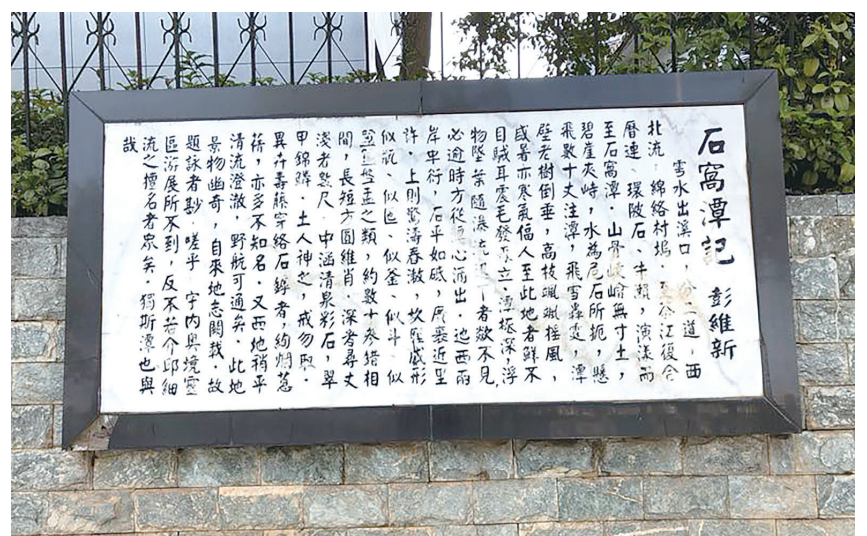 石窩潭記 彭維新
雪水出溪口，分二道，西
北流，綿絡村塢，至余江復合
曆連、環陂石、牛賴，演漾而
至石窩潭，山骨無寸土，
碧崖夾峙，水為危石所扼，懸
飛數十丈注潭，飛雪轟霆，潭
壁老樹倒垂，高枝颯颯搖風，
盛暑亦寒氣偪人至此地者鮮不
目眩耳震毛發立。潭極深，浮
物墜葉隨瀑流者欻不見，
必逾時方從潭心涌出。迆西兩
岸平衍，石平如砥，廣袤近里
許，上則驚濤舂激，坎窪成形
似瓴、似匜、似釜、似斗、似
盤盂之類，約數十參錯相
間，長短方圓維肖，深者尋丈
淺者數尺，中涵清泉彩石，翠
甲錦鱗，土人神之，戒勿取。
異卉壽藤穿絡石罅者，絢爛蔥
蒨，亦多不知名。又西地稍平
清流澄澈，野航可通矣。此地
景物幽奇，自來地志闕載，故
題詠者尠。嗟乎，宇内奥境靈
區游展所不到，反不若介邱細
流之擅名者眾矣。獨斯潭也與
哉